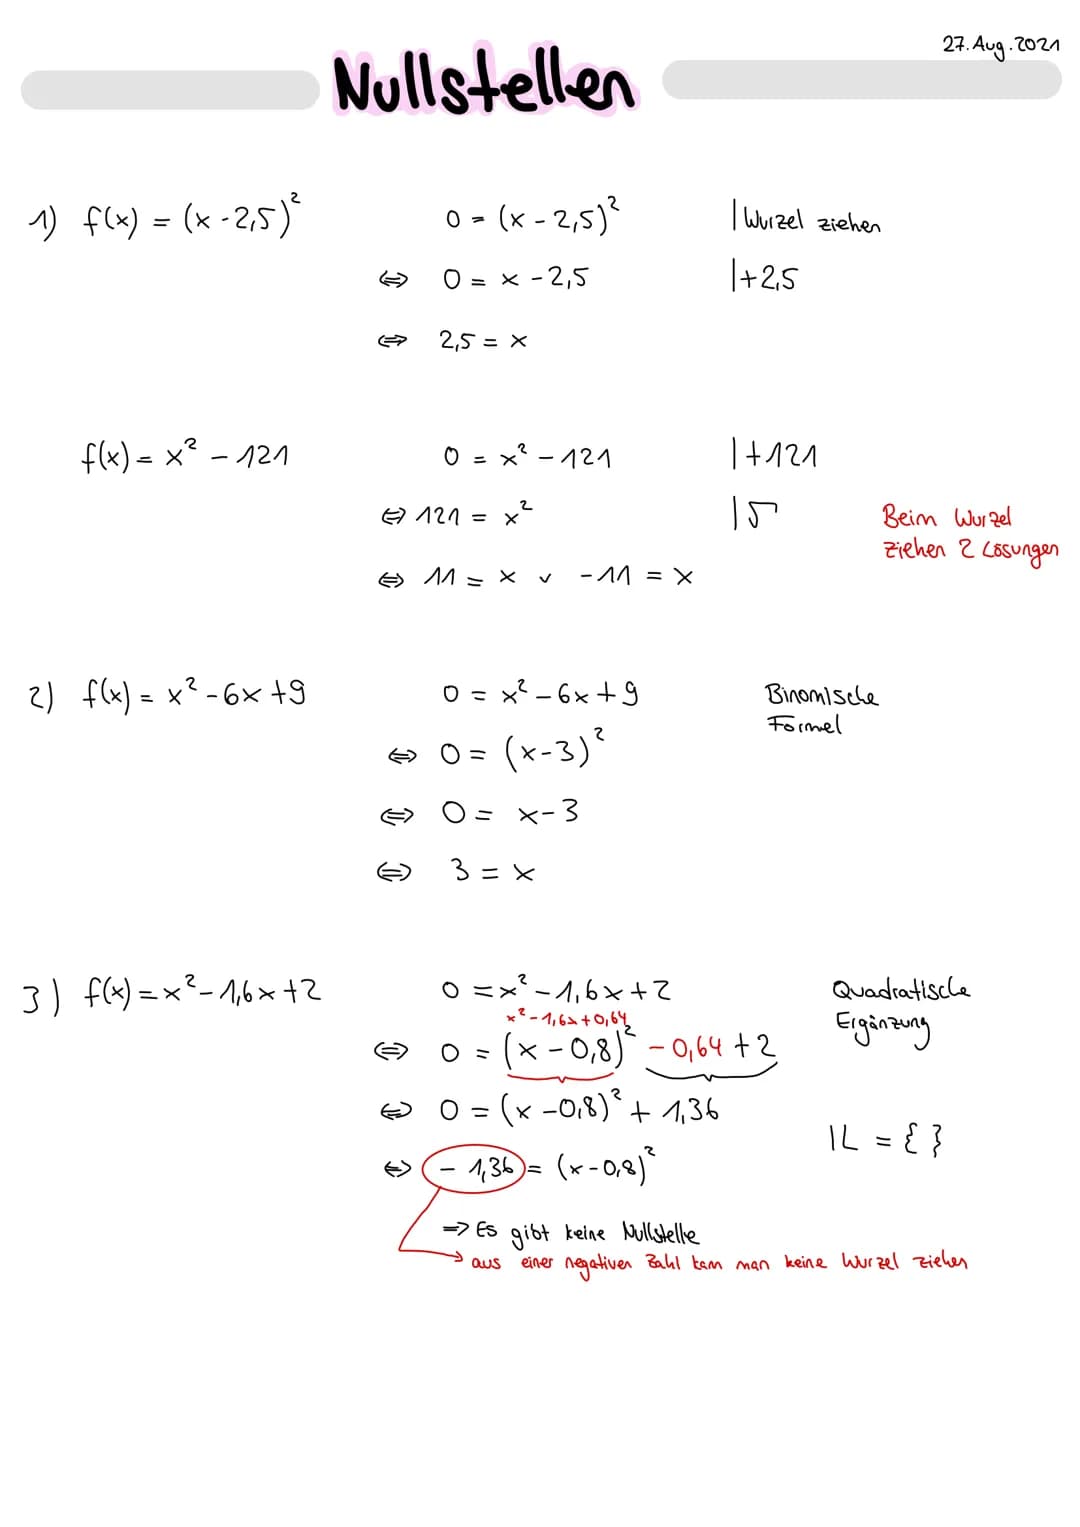 27. Aug. 2021
Nullstellen
1) f(x) = (x - 2,5)² 0 = (x - 2,5)² | Wurzel ziehen
⇔ 0 = x - 2,5 |+2,5
⇔ 2,5 = x
f(x) = x² - 121 0 = x² - 121 |+121
⇔ 121 = x² |√ Beim Wurzel
ziehen 2 Lösungen
⇔ 11 = x ∨ -11 = x
2) f(x) = x² - 6x + 9 0 = x² - 6x + 9 Binomische
Formel
⇔ 0 = (x-3)²
⇔ 0 = x-3
⇔ 3 = x
3) f(x) = x² - 1,6x + 2 0 = x² - 1,6x + 2 Quadratische
Ergänzung
x² - 1,6x + 0,64
⇔ 0 = (x - 0,8)² - 0,64 + 2
⇔ 0 = (x - 0,8)² + 1,36
𝕃 = { }
⇔ - 1,36 = (x - 0,8)²
=> Es gibt keine Nullstelle
→ aus einer negativen Zahl kann man keine Wurzel ziehen